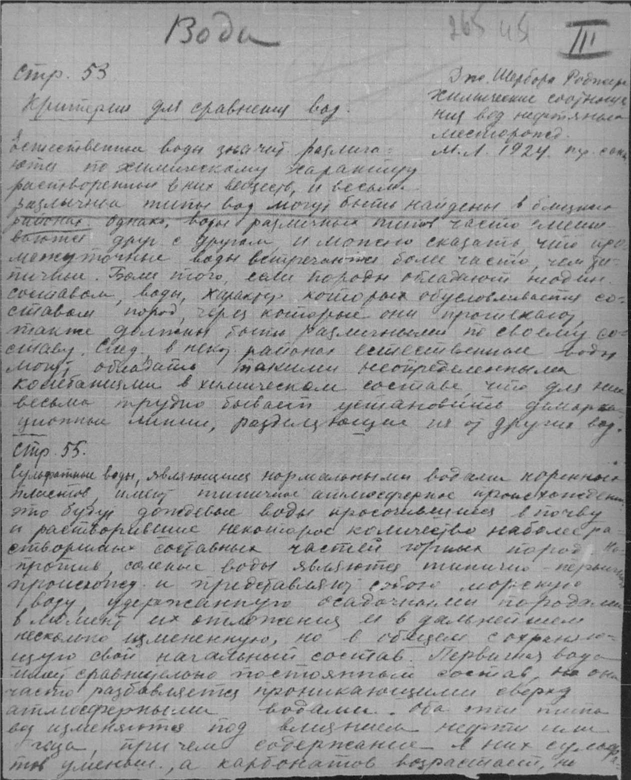 Вода
265 45
III
стр. 53
Дж. Шербора Роджер
Химические соотноше
Критерии для сравнения вод.
ния вод нефтяных
месторожд.
Естественные воды значит. различа-
М.Л. 1924.
ются по химическому характеру
растворенных в них веществ, и весьма
различные типы вод могут быть найдены в близких
районах однако, воды различных типов часто смеши
ваются друг с другом, и можно сказать, что про
межуточные воды встречаются более часто, чем ти-
пичные. Более того, если породы обладают
составом, воды, характер которых обусловливается со-
ставом пород, через которые они протекают,
также должны быть различными по своему со-
ставу. След., в неко районах естественные воды
могут обладать такими неопределенными
колебаниями в химическом составе что для них
весьма трудно бывает установить демарка-
ционные линии, разделяющие их от других вод.
стр. 55.
Сульфатные воды, являющиеся нормальными водами коренных
пластов, имеют типичное атмосферное происхождение
это будут дождевые воды просочившиеся в почву
и растворившие некоторое количество наиболее ра
створимых составных частей горных пород. На
против, соленые воды являются типично первичн
происхожд. и представляют собою морскую
воду, удержанную осадочными породами
в момент их отложения и в дальнейшем
несколько измененную, но в общем сохраняю-
щую свой начальный состав. Первичная вода
имеет сравнительно постоянный состав, но она
часто разбавляется проникающими сверху
атмосферными водами. Оба эти типа
вод изменяются под влиянием нефти или
газа, причем содержание в них сульфа-
тов уменьш., а карбонатов возрастает, и